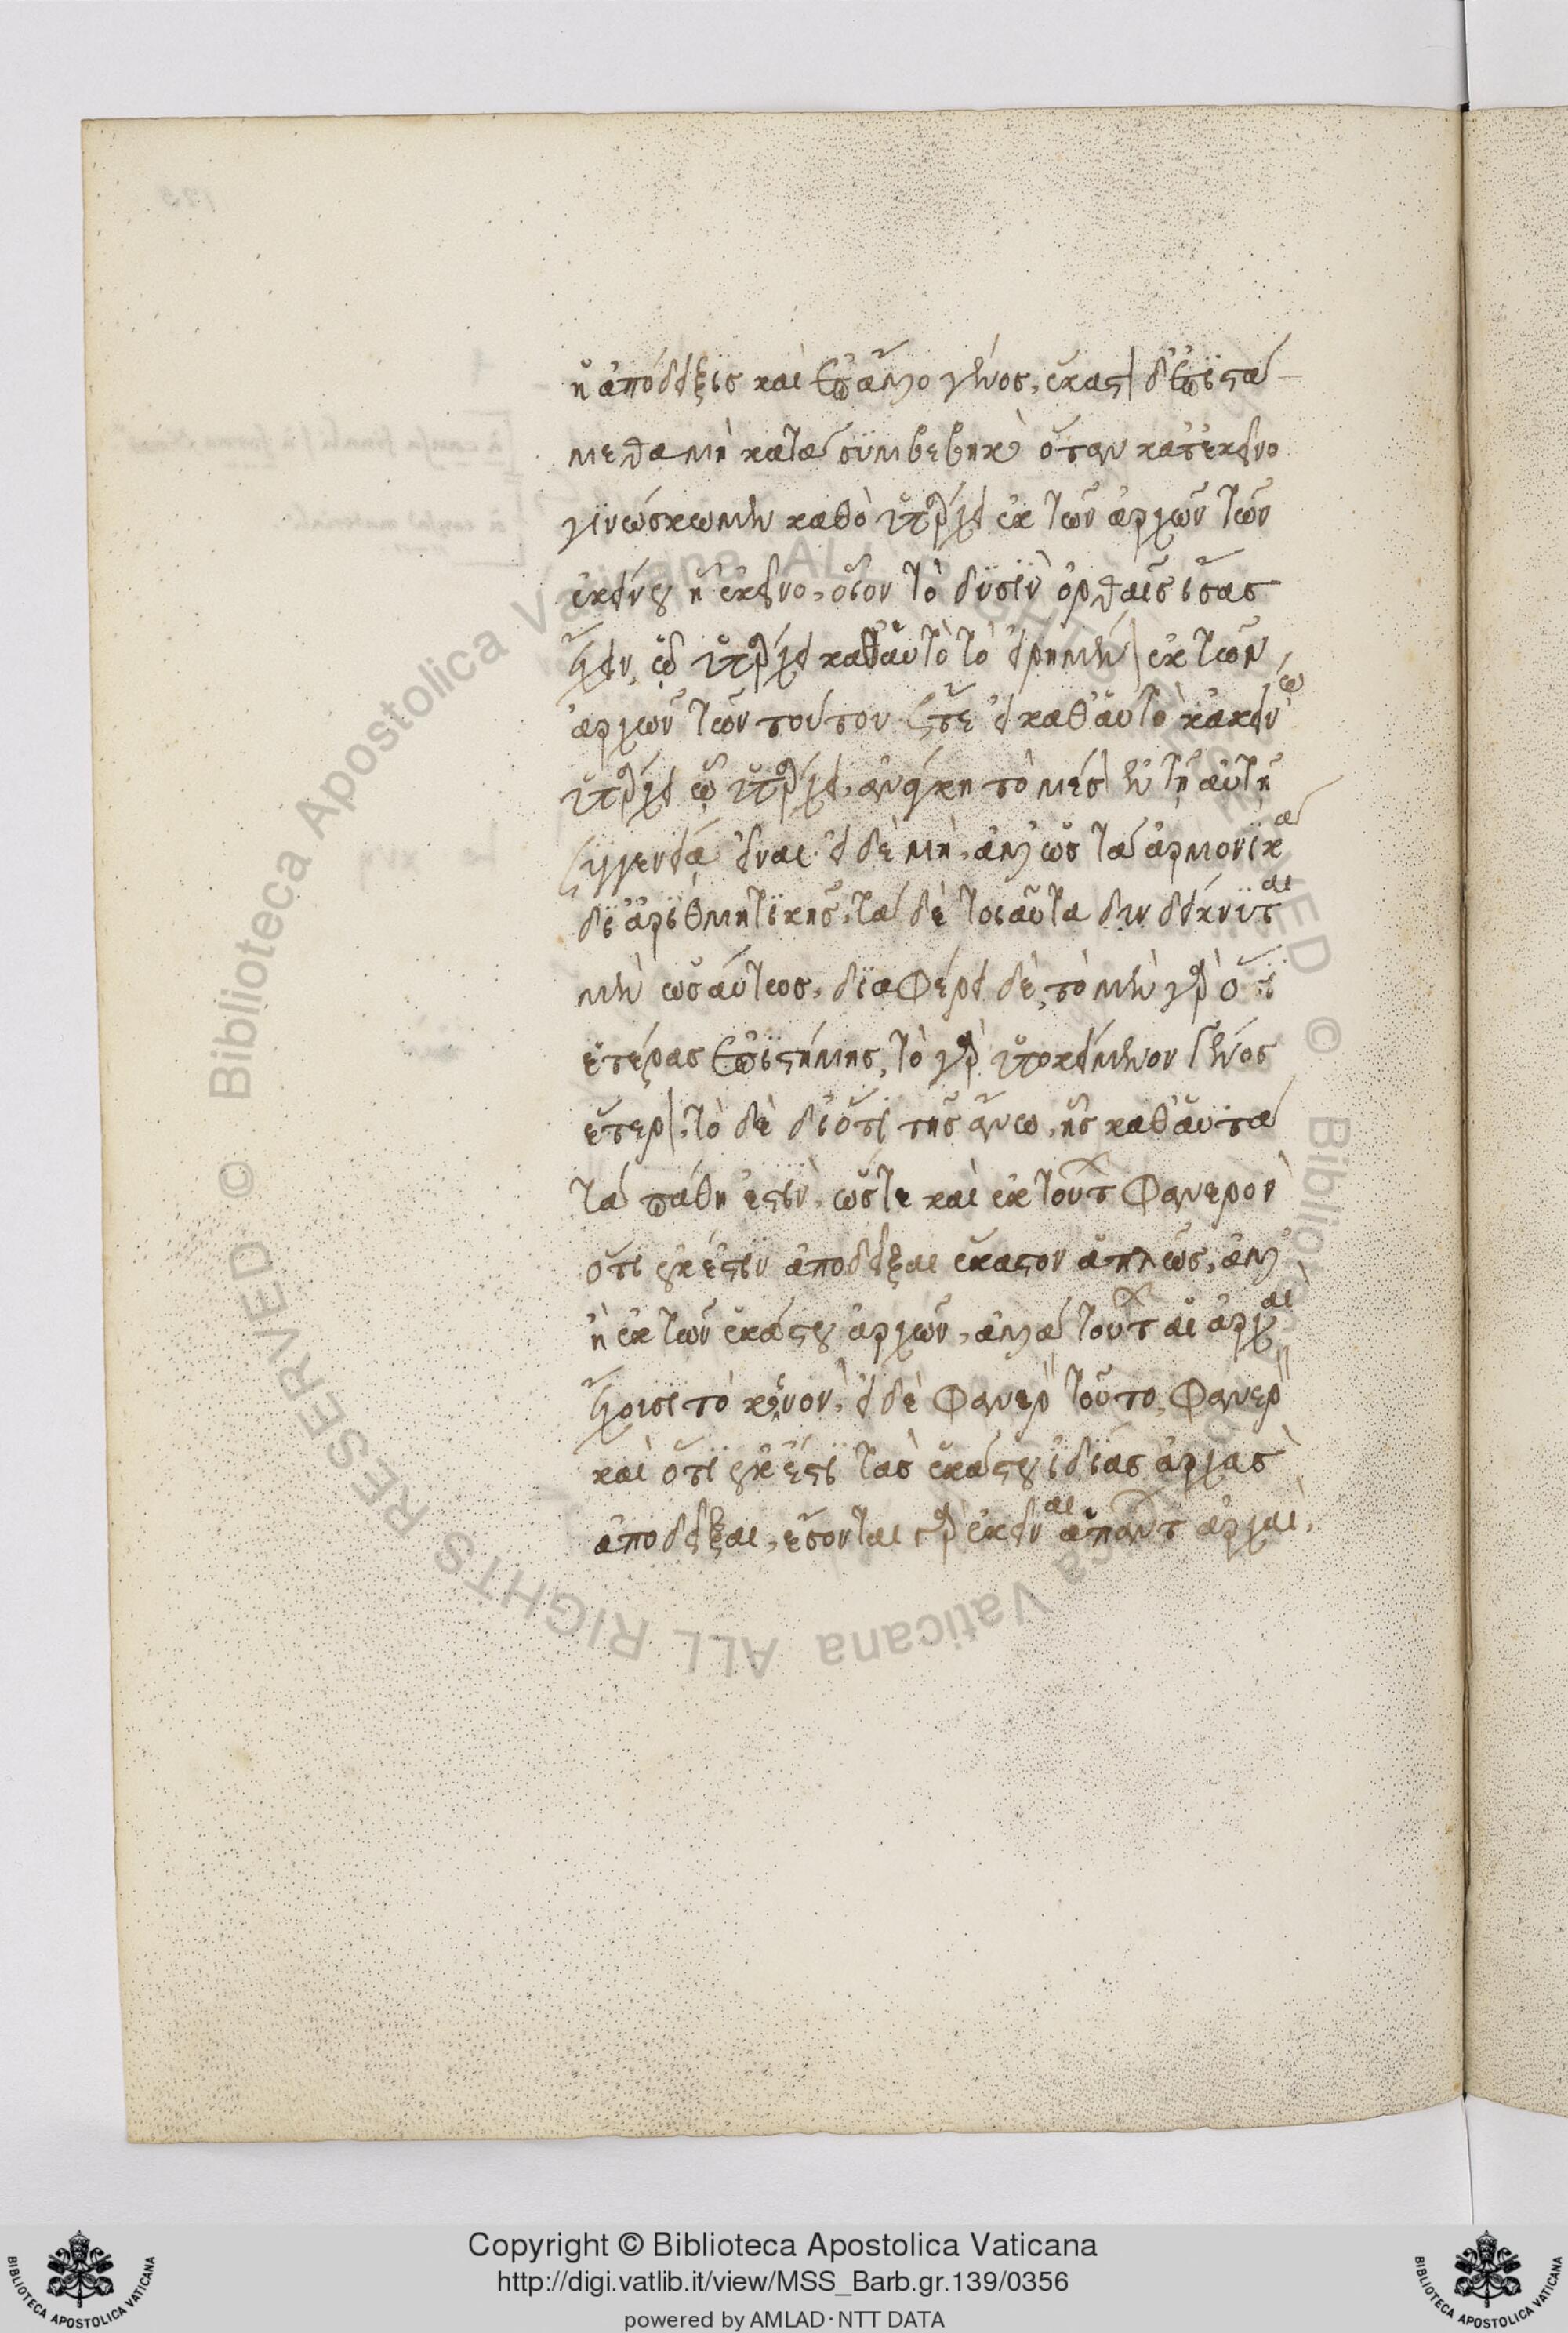 ἡ ἀπόδειξις καὶ ἐπ' ἄλλο γένος, ἕκαστον δ' ἐπιστά
μεθα μὴ κατὰ συμβεβηκὸς ὅταν κατ' ἐκεῖνο
γινώσκωμεν καθὸ ὑπάρχει ἐκ τῶν ἀρχῶν τῶν
ἐκείνου ἢ ἐκεῖνο, οἷον τὸ δυσὶν ὀρθαῖς ἴσας
ἔχειν, ᾧ ὑπάρχει καθ' αὑτὸ τὸ εἰρημένον ἐκ τῶν
ἀρχῶν τῶν τούτου ὥστε εἰ καθ' αὑτὸ κἀκείνῳ
ὑπάρχει ᾧ ὑπάρχει, ἀνάγκη τὸ μέσον ἐν τῇ αὐτῇ
συγγενείᾳ εἶναι. εἰ δὲ μὴ, ἀλλ' ὡς τὰ ἁρμονικὰ
δι' ἀριθμητικῆς, τὰ δὲ τοιαῦτα δείκνυται
μὲν ὡσαύτως, διαφέρει δὲ, τὸ μὲν γὰρ ὅτι
ἑτέρας ἐπιστήμης, τὸ γὰρ ὑποκείμενον γένος
ἕτερον, τὸ δὲ διότι τῆς ἄνω, ἧς καθ' αὑτὰ
τὰ πάθη ἐστὶν, ὥστε καὶ ἐκ τούτων φανερὸν
ὅτι οὐκ ἔστιν ἀποδεῖξαι ἕκαστον ἁπλῶς, ἀλλ'
ἢ ἐκ τῶν ἑκάστου ἀρχῶν, ἀλλὰ τούτων αἱ ἀρχαὶ
ἔχουσι τὸ κοινὸν, εἰ δὲ φανερὸν τοῦτο, φανερὸν
καὶ ὅτι οὐκ ἔστι τὰς ἑκάστου ἰδίας ἀρχὰς
ἀποδεῖξαι, ἔσονται γὰρ ἐκεῖναι ἁπάντων ἀρχαὶ,
Copyright © Biblioteca Apostolica Vaticana
http://digi.vatlib.it/view/MSS_Barb.gr.139/0356
powered by AMLAD · NTT DATA